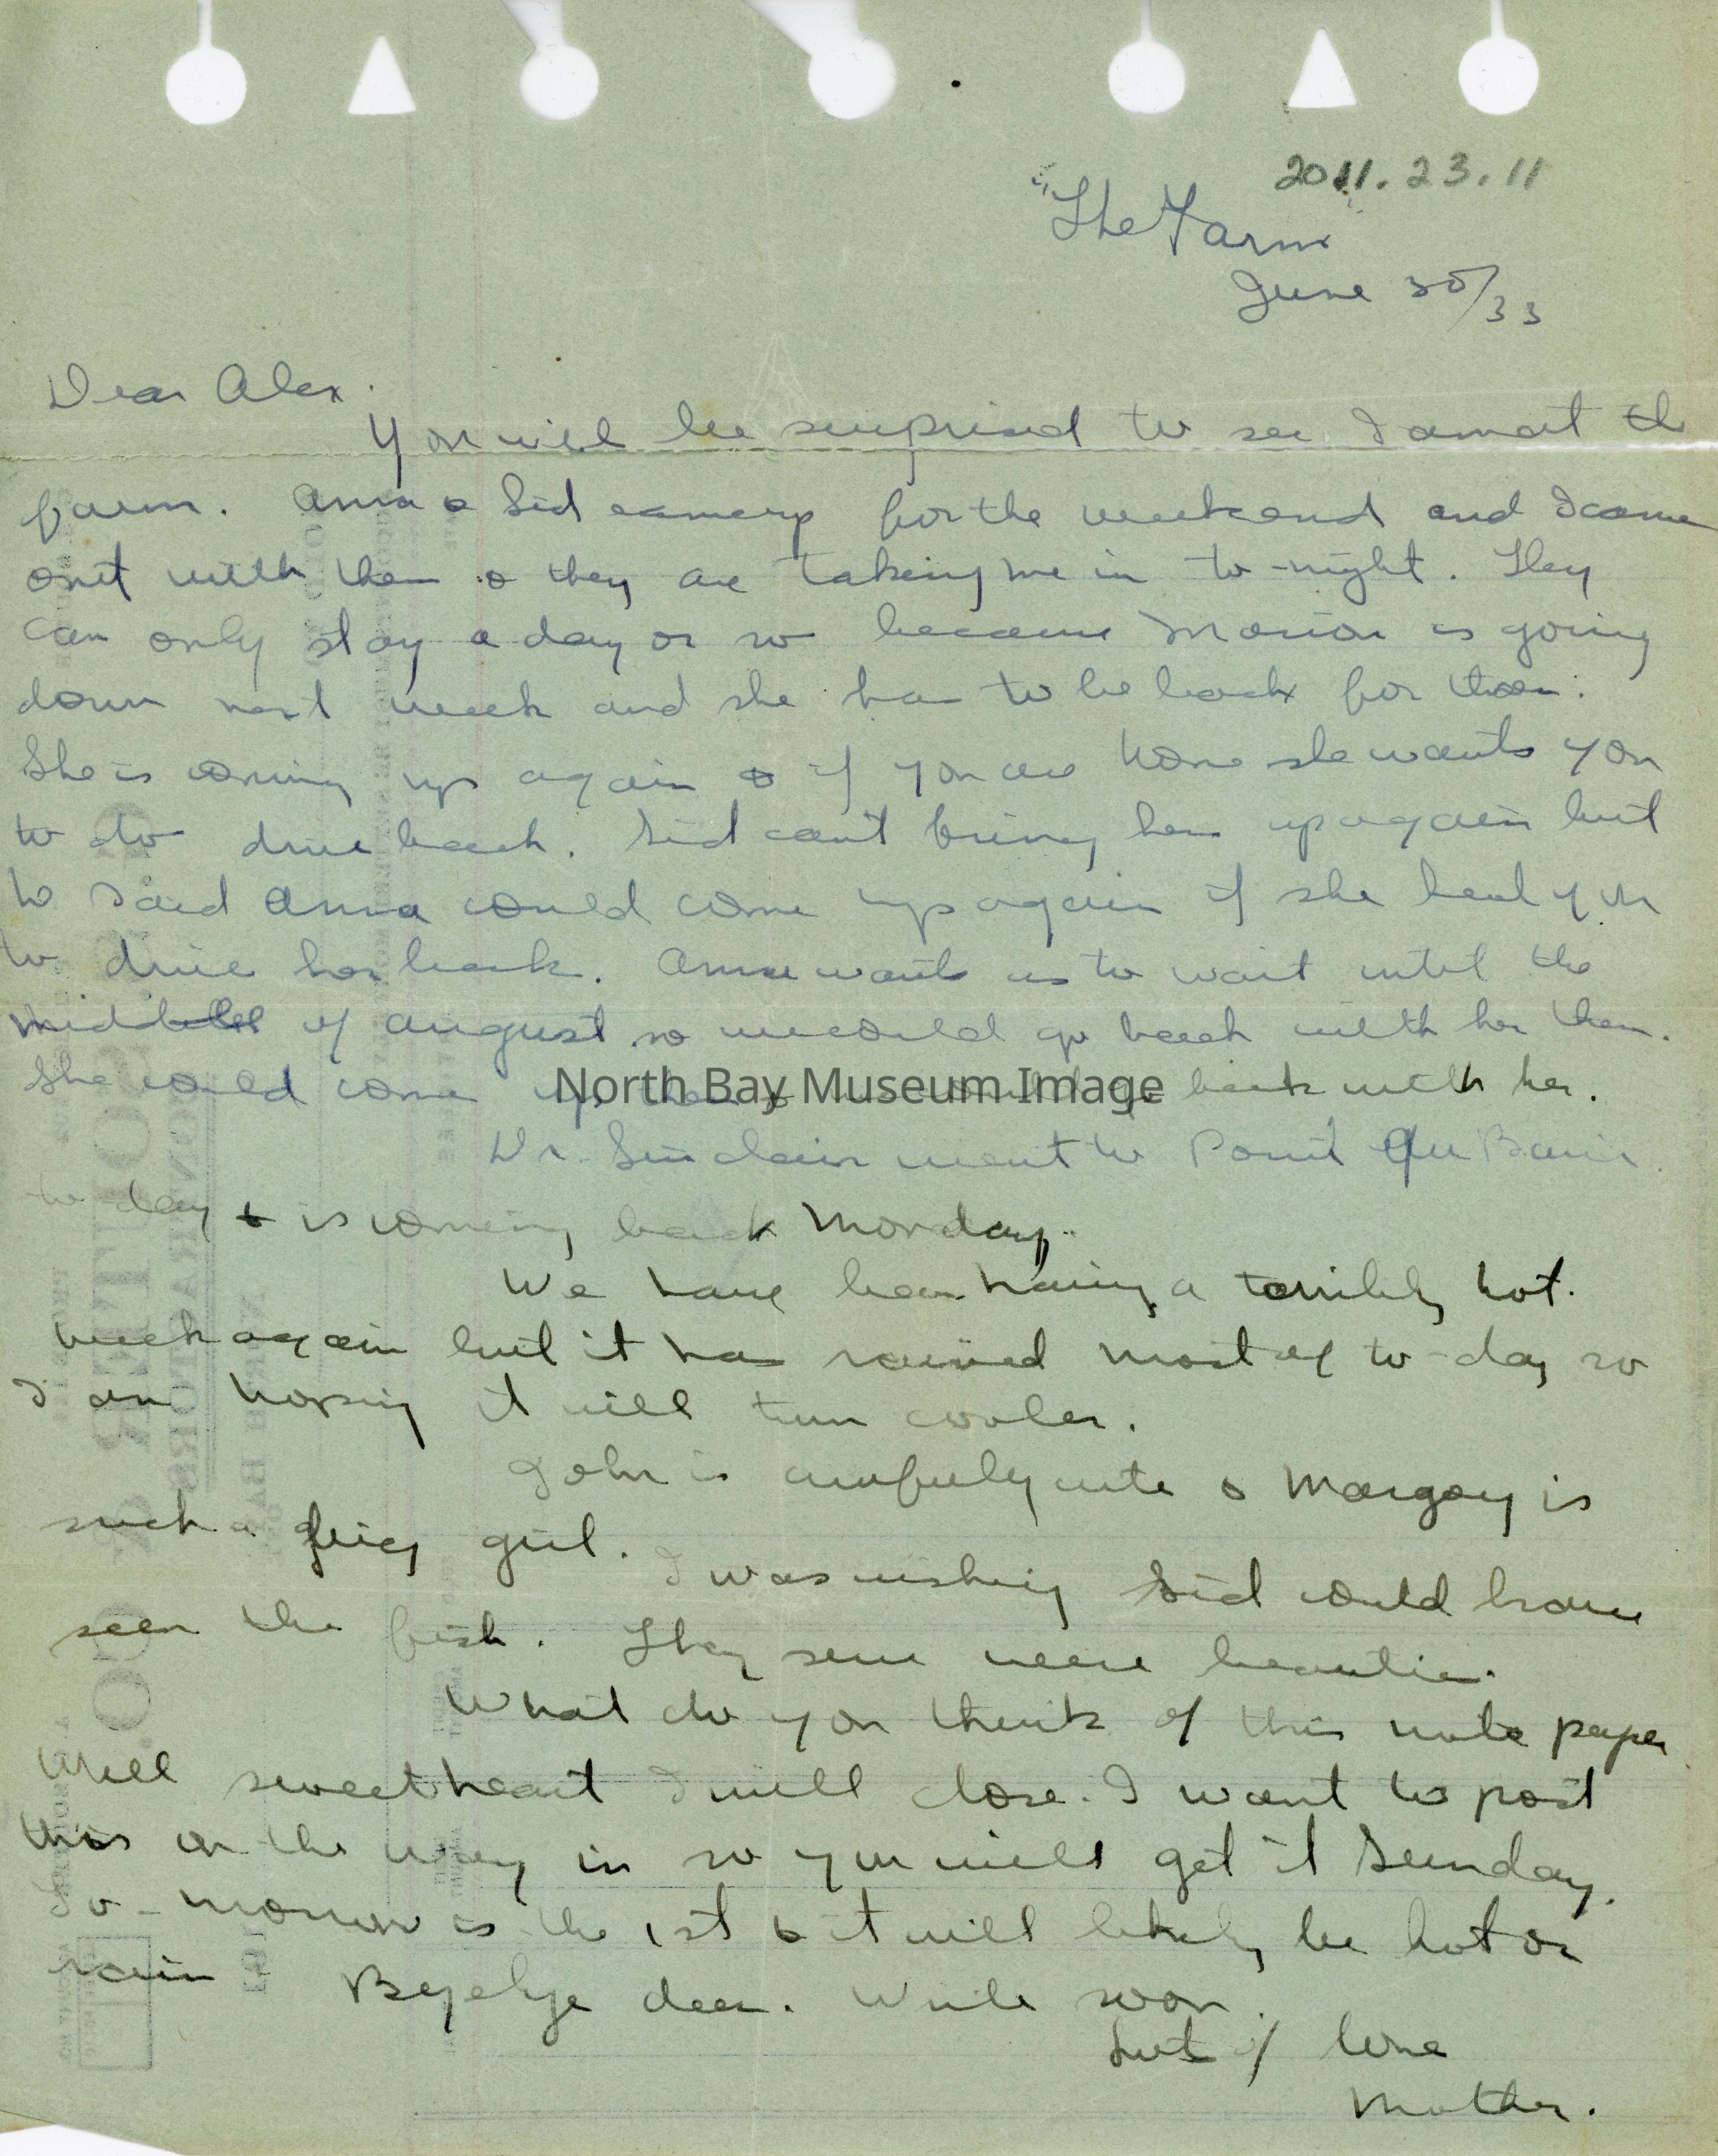 2011.23.11
"The Farm
June 30/33
Dear Alex.
You will be surprised to see I am at th
farm. Anna & Sid came up for the weekend and I came
out with them & they are taking me in to-night. They
can only stay a day or so because Marion is going
down next week and she has to be back for then.
She is coming up again & if you are home she wants you
to do drive back. Sid can't bring her up again but
he said Anna could come up again if she had you
to drive her back. Anna wants us to wait until the
middle of august so we could go back with her then.
She could come up then & we could go back with her.
North Bay Museum Image
Dr. Sinclair went to Point Au Baril
to day & is coming back Monday.
We have been having a terribly hot.
week again but it has rained most of to-day so
I am hoping it will turn cooler.
John is awfully cute & Margary is
such a big girl. I was wishing Sid could have
seen the fish. They sure were beauties.
What do you think of this note paper
Well sweetheart I will close. I want to post
this on the way in so you will get it Sunday.
To-morrow is the 1st & it will likely be hot or
rain. Byebye dear. Write soon.
Lots of love
Mother.